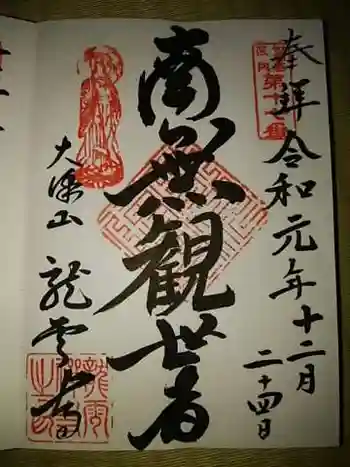 奉拝 令和元年十二月
二十四日
南無観世音
大澤山 龍雲寺